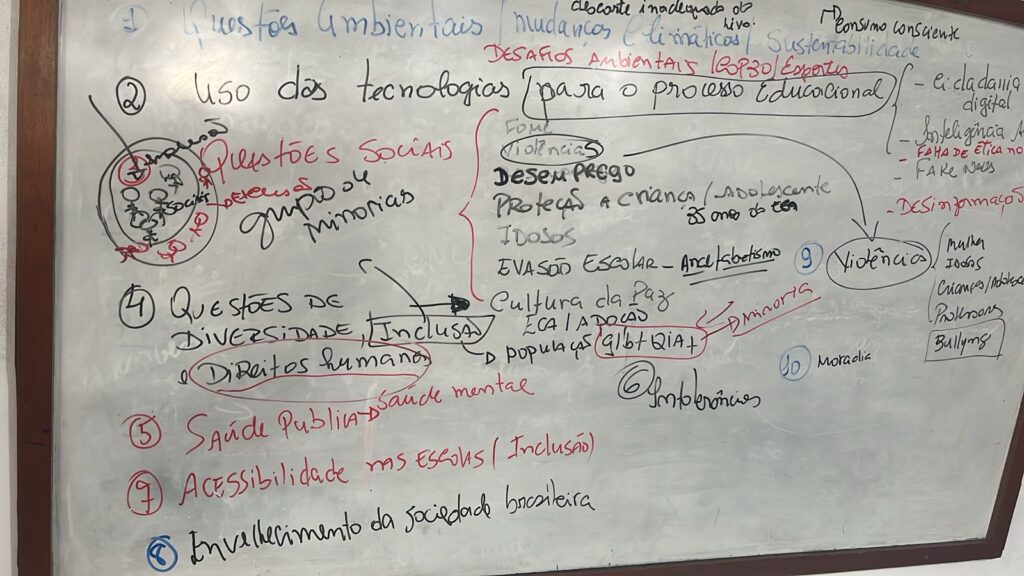 descarte inadequado do lixo.
→ Consumo consciente
1 Questões Ambientais / mudanças Climáticas / Sustentabilidade
DESAFIOS Ambientais / COP30 / Esportes
② Uso das tecnologias para o processo Educacional
- Cidadania digital
- Inteligência A
- FAKE News
- DESinformaçã
QUESTÕES SOCIAIS
grupo de minorias
Fome
Violências
DESEMPREGO
PROTEÇÃO A CRIANÇA / ADOLESCENTE
35 anos do ECA
IDOSOS
EVASÃO ESCOLAR - Analfabetismo
Cultura da Paz
ECA / ADOÇÃO
④ QUESTÕES DE DIVERSIDADE, Inclusão
e Direitos humanos
→ população glbtQIA+
→ minoria
⑨ Violências
Mulher
Idosos
Crianças/Adolesce
Professores
Bullyng
⑩ Moradia
⑥ Intolerâncias
⑤ SAÚDE PUBLICA → Saúde mental
⑦ ACESSIBILIDADE nas ESCOLAS (Inclusão)
⑧ Envelhecimento da sociedade brasileira